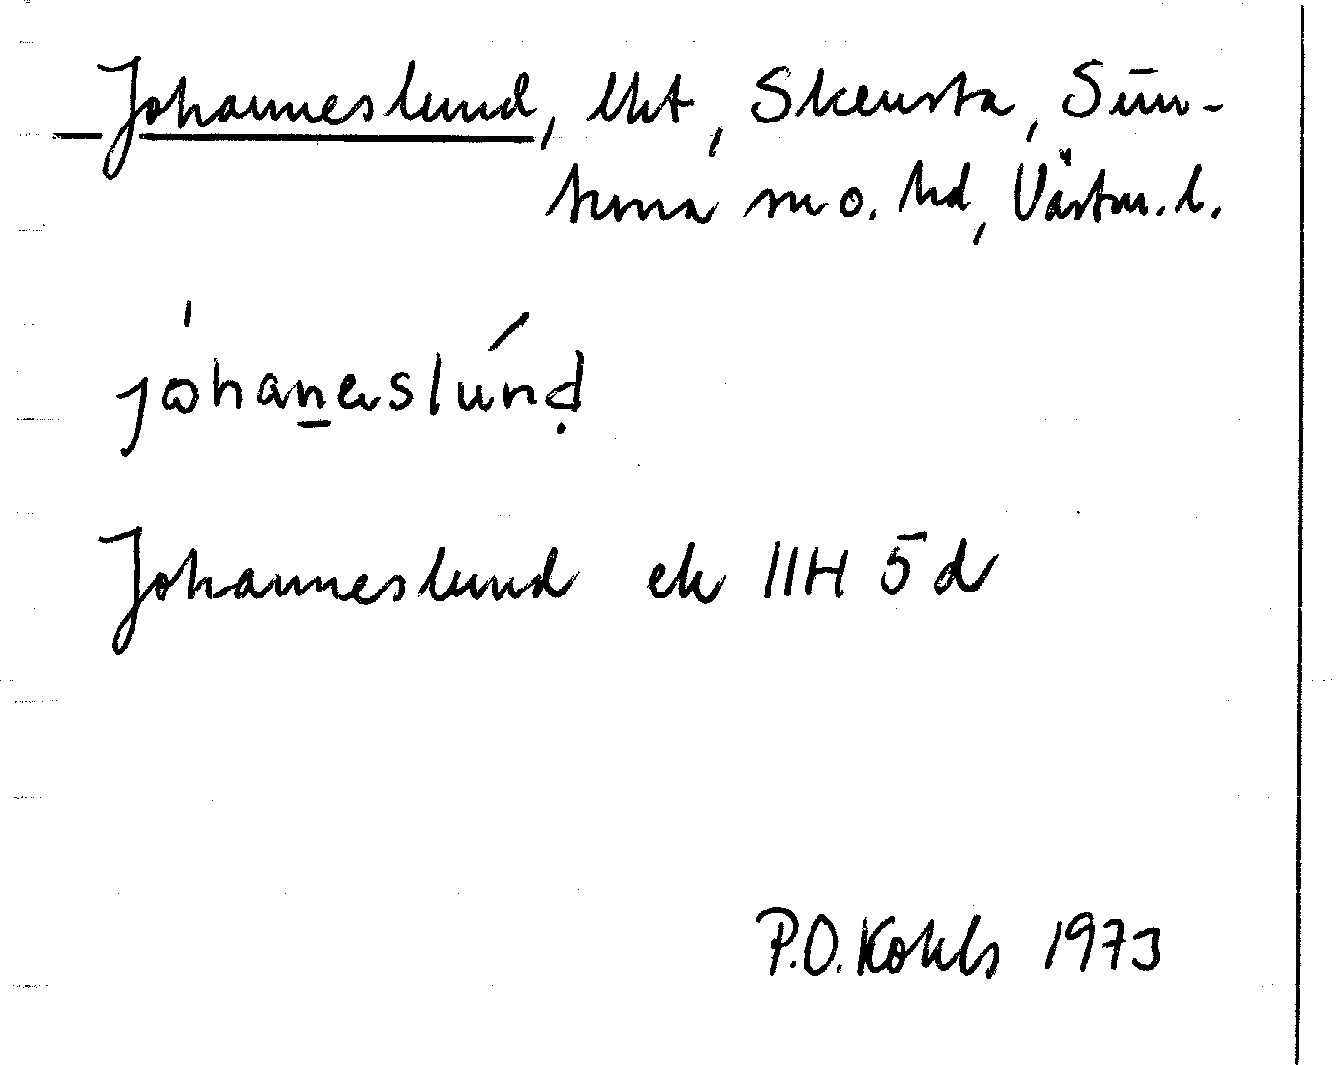 Johanneslund, lht, Skensta, Sim-
tuna sn o. hd, Västm. l.
johaneslund
Johanneslund ek 11H 5d
P.O. Kohls 1973